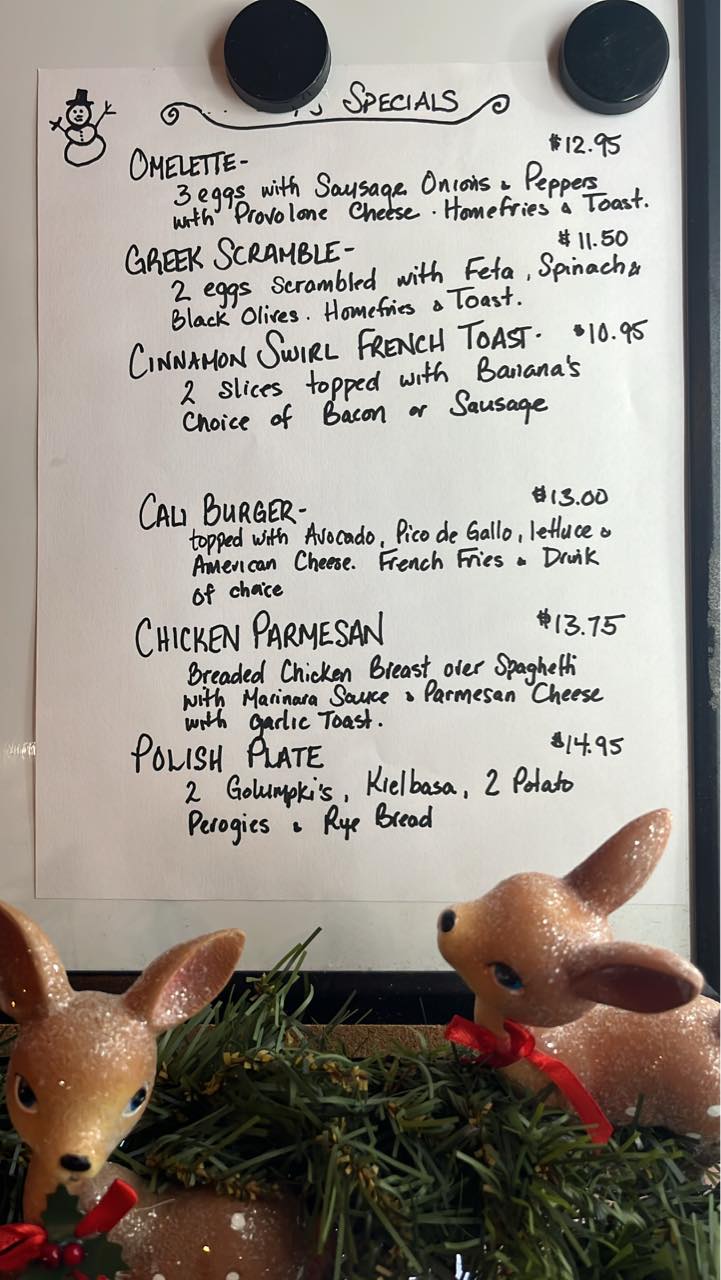 SPECIALS
OMELETTE- $12.95
3 eggs with Sausage Onions & Peppers
with Provolone Cheese. Homefries & Toast.
GREEK SCRAMBLE- $11.50
2 eggs scrambled with Feta, Spinach &
Black Olives. Homefries & Toast.
CINNAMON SWIRL FRENCH TOAST. $10.95
2 slices topped with Banana's
Choice of Bacon or Sausage
CALI BURGER- $13.00
topped with Avocado, Pico de Gallo, lettuce &
American Cheese. French Fries & Drink
of choice
CHICKEN PARMESAN $13.75
Breaded Chicken Breast over Spaghetti
with Marinara Sauce & Parmesan Cheese
with garlic Toast.
POLISH PLATE $14.95
2 Golumpki's, Kielbasa, 2 Potato
Perogies & Rye Bread